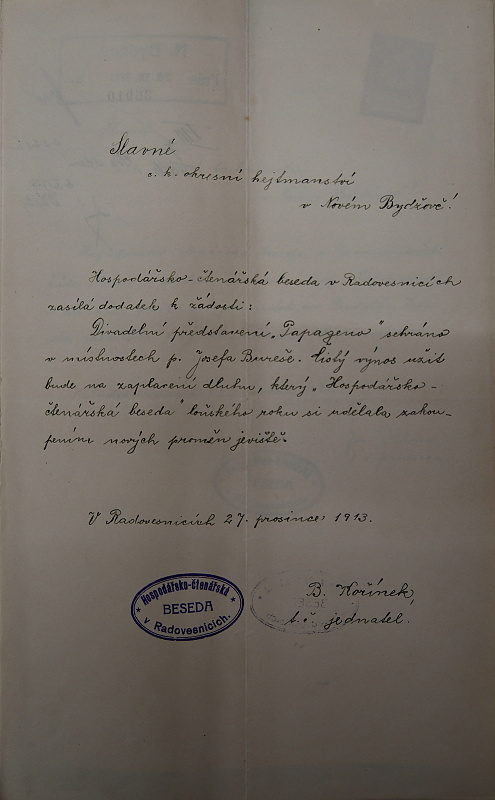 Slavné
c. k. okresní hejtmanství
v Novém Bydžově!
Hospodářsko-čtenářská beseda v Radovesnicích
zasílá dodatek k žádosti:
Divadelní představení „Papageno" sehráno
v místnostech p. Josefa Bureše. Čistý výnos užit
bude na zaplacení dluhu, který „Hospodářsko-
čtenářská beseda" loňského roku si udělala zakou-
pením nových proměn jeviště.
V Radovesnicích 27. prosince 1913.
Hospodářsko-čtenářská
BESEDA
v Radovesnicích.
B. Kořínek,
t. č. jednatel.